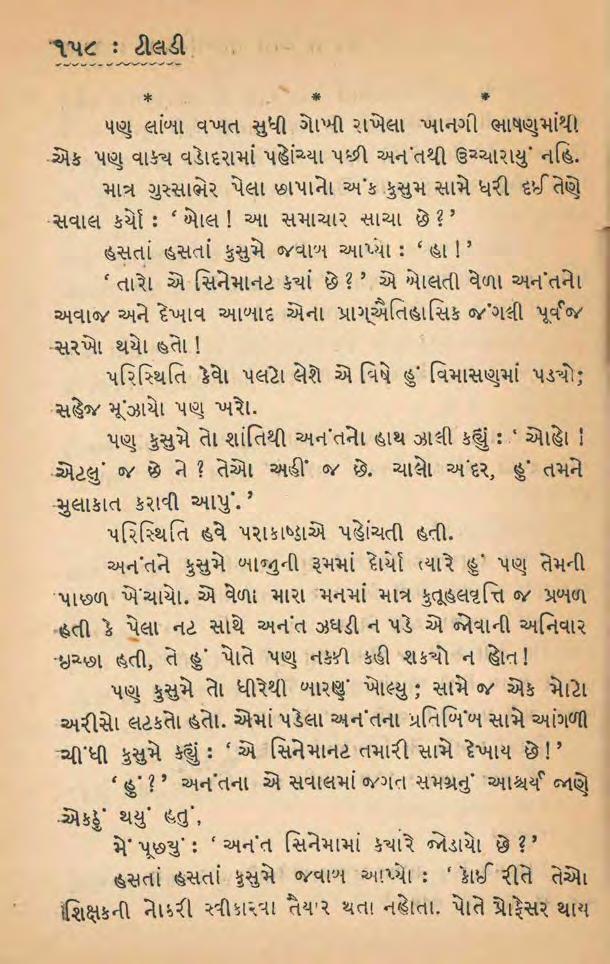 ૧૫૮ : ટીલડી
* * *
પણ લાંબા વખત સુધી ગોખી રાખેલા ખાનગી ભાષણમાંથી
એક પણ વાક્ય વડોદરામાં પહોંચ્યા પછી અનંતથી ઉચ્ચારાયું નહિ.
માત્ર ગુસ્સાભેર પેલા છાપાનો અંક કુસુમ સામે ધરી દઈ તેણે
સવાલ કર્યો : ‘ બોલ ! આ સમાચાર સાચા છે ? ’
હસતાં હસતાં કુસુમે જવાબ આપ્યો : ‘ હા ! ’
‘ તારો એ સિનેમાનટ કયાં છે ? ’ એ બોલતી વેળા અનંતનો
અવાજ અને દેખાવ આબાદ એના પ્રાગ્ઐતિહાસિક જંગલી પૂર્વજ
સરખો થયો હતો !
પરિસ્થિતિ કેવો પલટો લેશે એ વિષે હું વિમાસણમાં પડયો;
સહેજ મૂંઝાયો પણ ખરો.
પણ કુસુમે તો શાંતિથી અનંતનો હાથ ઝાલી કહ્યું : ‘ ઓહો !
એટલું જ છે ને ? તેઓ અહીં જ છે. ચાલો અંદર, હું તમને
મુલાકાત કરાવી આપું. ’
પરિસ્થિતિ હવે પરાકાષ્ઠાએ પહોંચતી હતી.
અનંતને કુસુમે બાજુની રૂમમાં દોર્યો ત્યારે હું પણ તેમની
પાછળ ખેંચાયો. એ વેળા મારા મનમાં માત્ર કુતૂહલવૃત્તિ જ પ્રબળ
હતી કે પેલા નટ સાથે અનંત ઝઘડી ન પડે એ જોવાની અનિવાર
ઇચ્છા હતી, તે હું પોતે પણ નક્કી કહી શકયો ન હોત !
પણ કુસુમે તો ધીરેથી બારણું ખોલ્યુ ; સામે જ એક મોટો
અરીસો લટકતો હતો. એમાં પડેલા અનંતના પ્રતિબિંબ સામે આંગળી
ચીંધી કુસુમે કહ્યું : ‘ એ સિનેમાનટ તમારી સામે દેખાય છે ! ’
‘ હું ? ’ અનંતના એ સવાલમાં જગત સમગ્રનું આશ્ચર્ય જાણે
એકઠું થયું હતું.
મેં પૂછયું : ‘ અનંત સિનેમામાં કયારે જોડાયો છે ? ’
હસતાં હસતાં કુસુમે જવાબ આપ્યો : ‘ કોઈ રીતે તેઓ
શિક્ષકની નોકરી સ્વીકારવા તૈયાર થતા નહોતા. પોતે પ્રોફેસર થાય